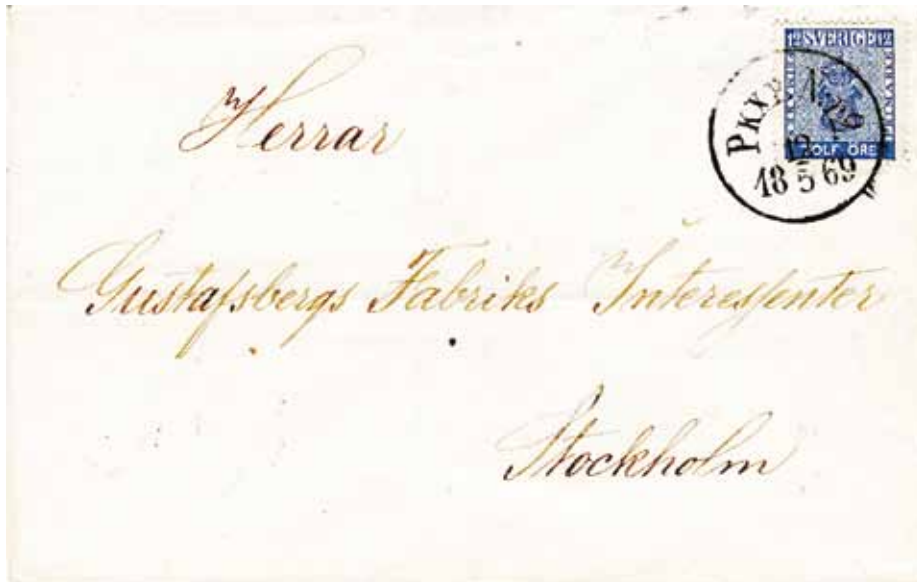 12 SVERIGE 12
TOLF ÖRE
FRIMÄRKE
PKXP
12
18 5 69
Herrar
Gustafsbergs Fabriks Interessenter
Stockholm